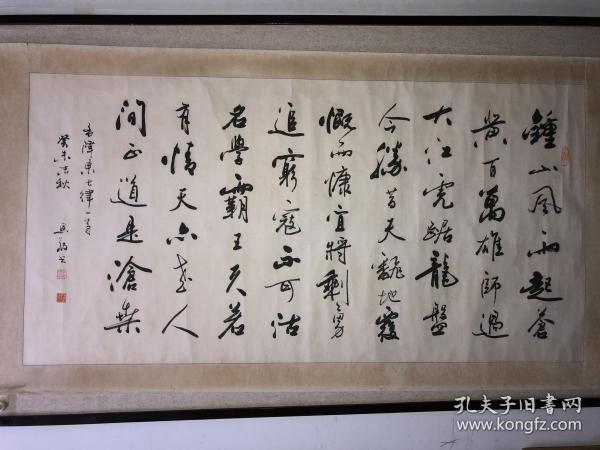 鍾山風雨起蒼
黄百萬雄師過
大江虎踞龍盤
今勝昔天翻地覆
慨而慷宜將剩勇
追窮寇不可沽
名學霸王天若
有情天亦老人
間正道是滄桑
毛澤東七律一首
癸未 秋
孔夫子旧书网
www.kongfz.com